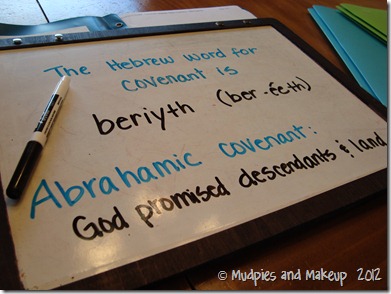 The Hebrew word for
covenant is
beriyth (ber-ēē-th)
Abrahamic covenant:
God promised descendants & land
© Mudpies and Makeup 2012